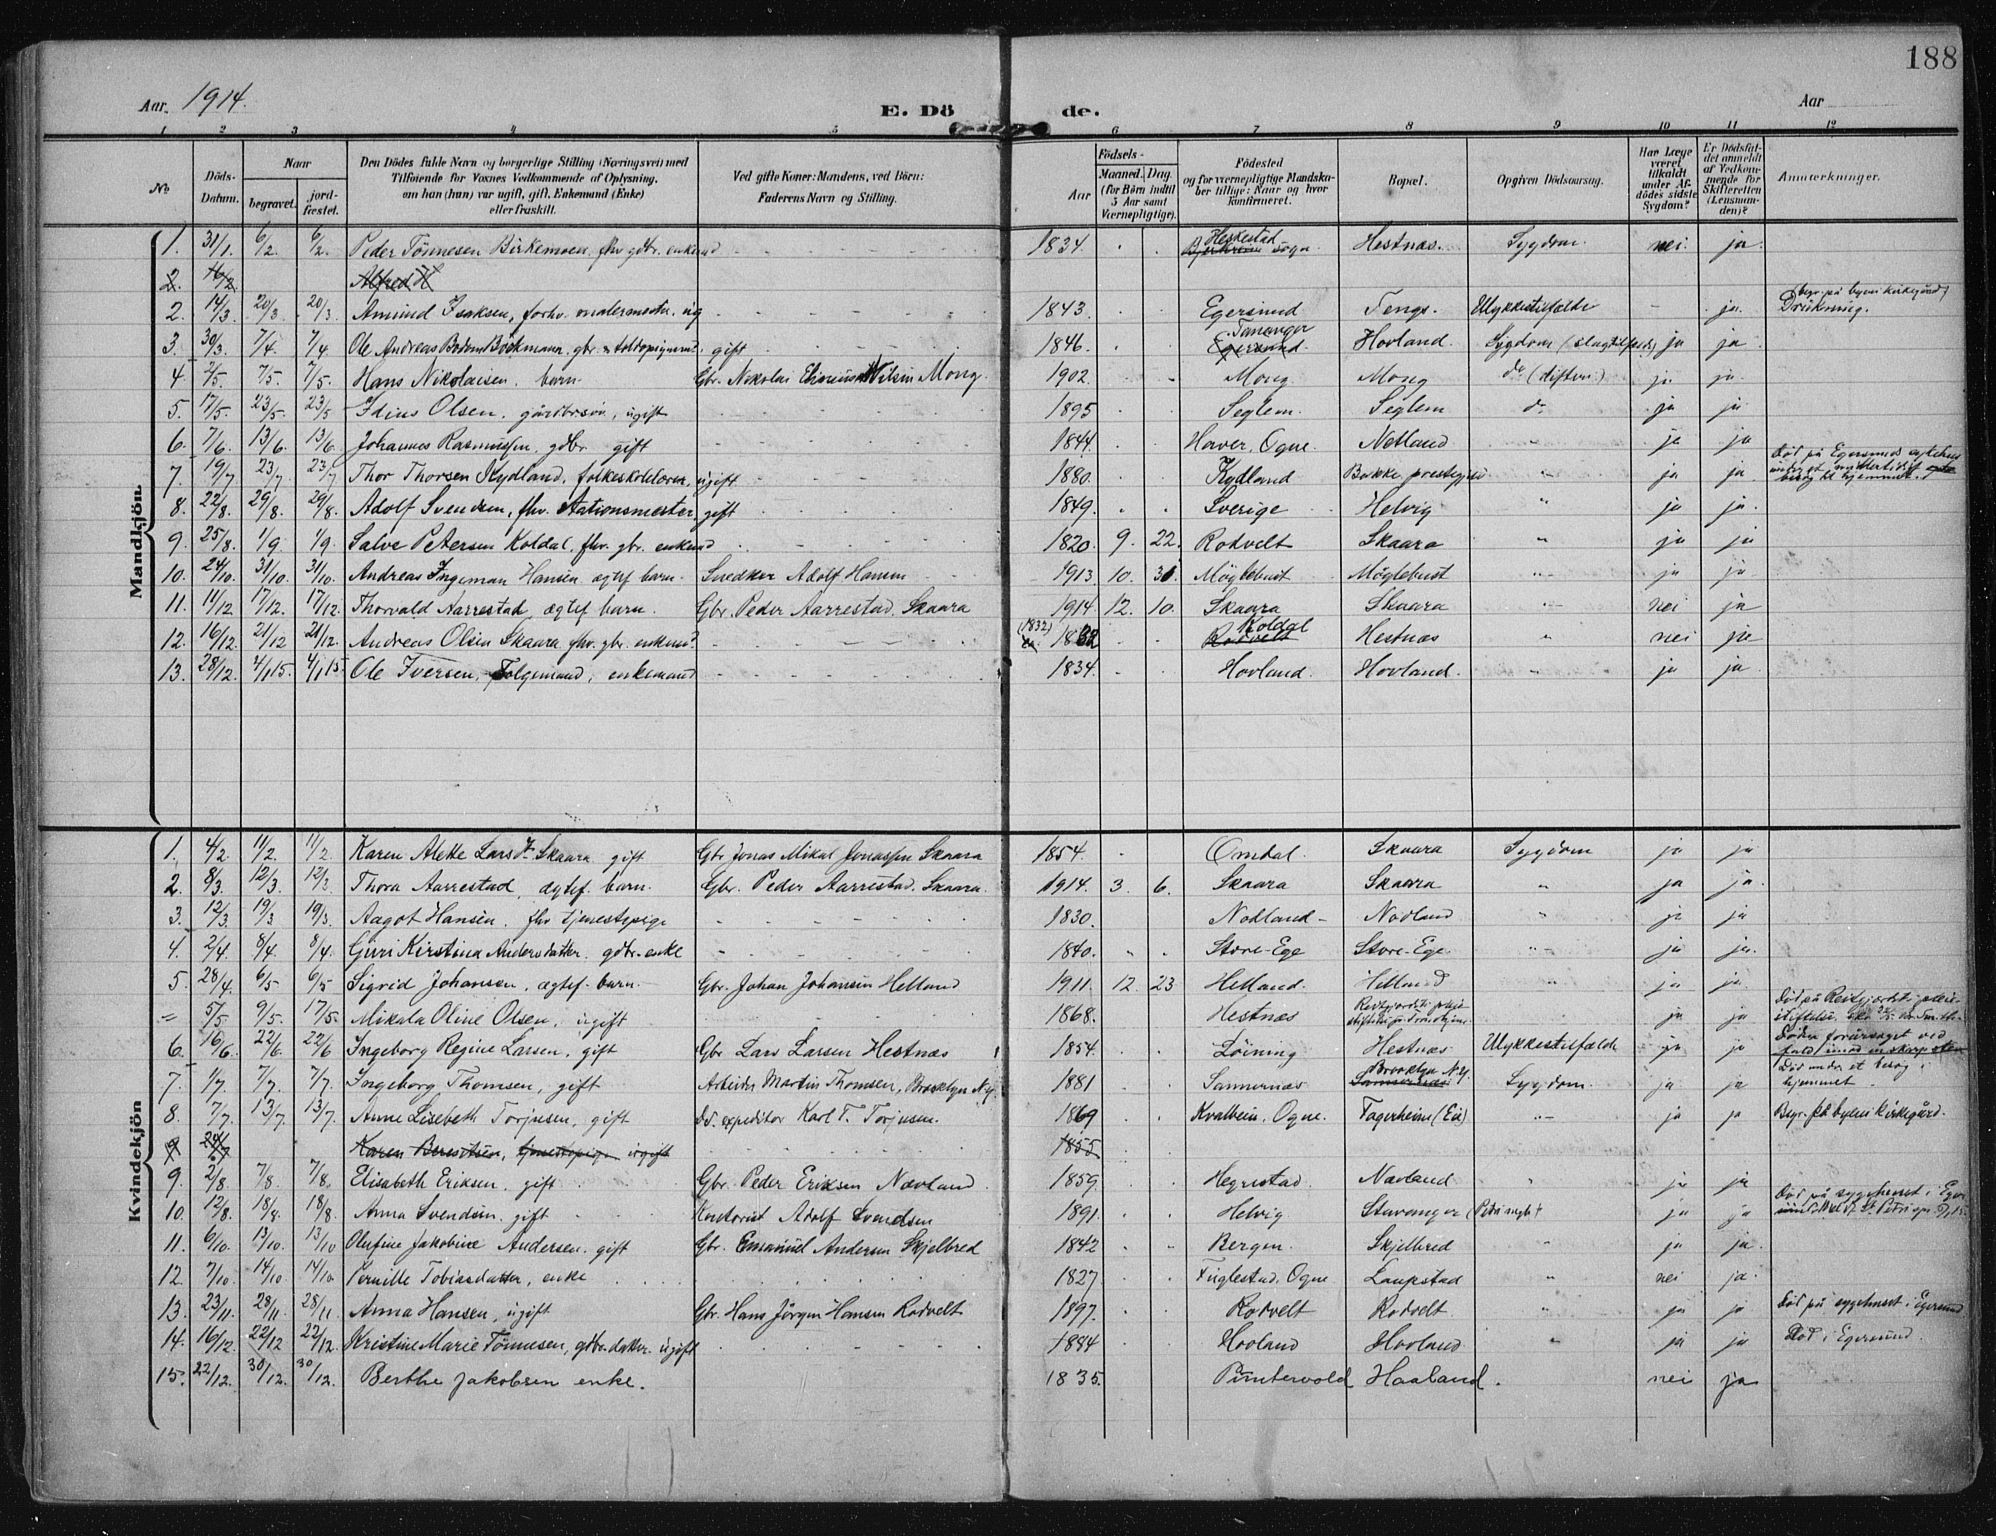 188
Aar 1914. E. Dö de. Aar
1 2 3 4 5 6 7 8 9 10 11 12
No Döds-Datum. Naar begravet. jord-fæstet. Den Dödes fulde Navn og borgerlige Stilling (Næringsvei) med Tilföiende for Voxnes Vedkommende af Oplysning, om han (hun) var ugift, gift, Enkemand (Enke) eller fraskilt. Ved gifte Koner: Mandens, ved Börn: Faderens Navn og Stilling. Födsels- Aar Maaned. Dag. (for Börn indtil 5 Aar samt Værnepligtige). Födested og for værnepligtige Mandskaber tillige: Naar og hvor konfirmeret. Bopæl. Opgiven Dödsaarsag. Har Læge været tilkaldt under Afdödes sidste Sygdom? Er Dödsfaldet anmeldt af Vedkommende for Skifteretten (Lensmanden)? Anmærkninger.
Mandkjön.
1. 31/1. 6/2. 6/2. Peder Tönnesen Birkemoen, fhv gdbr. enkemd 1834. Heskestad Bjerkreim sogn Hestnæs. Sygdom. nei. ja.
2. 16/2 Alfred H
2. 14/3. 20/3. 20/3. Amund Isaksen, forhv. malermester, ug 1843. Egersund Tengs. Ulykkestilfælde - ja. begr. på byens kirkegård Drukning.
3. 30/3. 7/4. 7/4. Ole Andreas Bodom Böckmann, gbr. gift 1846. Tananger Egersund. Hovland. Sygdom (slagtilfælde) ja ja
4. 2/5. 7/5. 7/5. Hans Nikolaisen. barn. Gbr. Nikolai Mong. 1902. Mong Mong do (difteri) ja ja
5. 17/5. 23/5 23/5 Idius Olsen, gårdbrsön, ugift 1895 Seglem. Seglem do ja ja
6. 7/6. 13/6. 13/6. Johannes Rasmussen, gdbr. gift 1844. Haver, Ogne. Netland " ja ja
7. 19/7 23/7 23/7 Thor Thorsen Kydland, folkeskolelærer, ugift 1880. Kydland Bakke prestegjeld " ja ja. Död på Egersunds sykehus under et midlertidigt besög til hjemmet.
8. 22/8. 29/8. 29/8. Adolf Svendsen, fhv. stationsmester, gift 1849. Sverige Helvig " ja ja.
9. 25/8. 1/9. 1/9. Salve Petersen Koldal, fhv. gbr. enkemd 1820. 9. 22. Rodvelt Skaara " ja ja
10. 24/10. 31/10. 31/10. Andreas Ingeman Hansen, ægtef barn. Snedker Adolf Hansen 1913. 10. 31. Möglebust Möglebust " ja ja.
11. 14/12 17/12. 17/12. Thorvald Aarrestad, ægtef barn. Gbr. Peder Aarrestad, Skaara 1914. 12. 10. Skaara Skaara " nei ja
12. 16/12. 21/12 21/12. Andreas Olsen Skaara, fhv. gbr. enkemd (1832) 1832 Koldal Rodvelt Hestnæs " nei ja
13. 28/12. 4/1 15. 4/1 15. Ole Iversen, Folgemand, enkemand 1834. Hovland. Hovland. ja ja.
Kvindekjön
1. 4/2 11/2. 11/2. Karen Alette Larsdt Skaara gift Gbr Jonas Mikal Jonassen Skaara 1854. Omdal. Skaara Sygdom ja ja
2. 8/3. 12/3. 12/3 Thora Aarrestad, ægtef. barn. Gbr. Peder Aarrestad, Skaara. 1914. 3. 6. Skaara Skaara " ja ja.
3. 12/3 19/3 19/3. Aagot Hansen, fhv tjenestepige 1830. Nodland Nodland " ja ja
4. 2/4. 8/4. 8/4. Guri Kirstina Andersdatter gdbr. enke 1840. Store-Ege Store-Ege " ja ja.
5. 28/4. 6/5 6/5 Sigrid Johansen, ægtef. barn. Gbr. Johan Johansen Helland 1911. 12. 23 Helland. Helland " ja ja.
5/5 9/5. 17/5. Mikala Oline Olsen, ugift 1868. Hestnæs ja ja
6. 16/6. 22/6 22/6 Ingeborg Regine Larsen, gift Gbr Lars Larsen Hestnæs 1854. Löining Hestnæs Ulykkestilfælde ja ja Döden forårsaget ved fald mod en skarp sten
7. 1/7. 7/7. 7/7. Ingeborg Thomsen, gift Arbeider Martin Thomsen, Brooklyn N.Y. 1881 Sannernæs Brooklyn N.Y. Sannernæs Sygdom. ja ja Död under et besög i hjemmet
8. 7/7. 13/7 13/7 Anne Lisebeth Torjusen, gift D.S. expeditör Karl T. Torjusen. 1869 Kvalbein, Ogne. Fagerheim (Eie) " ja ja Begr. på byens kirkegård.
9 24/7 Karen Berentsen, tjenestepige ugift 1855
9. 2/8 7/8. 7/8. Elisabeth Eriksen, gift Gbr. Peder Eriksen Nævland 1859. Hegrestad. Nævland " ja ja
10. 12/8. 18/8. 18/8. Anna Svendsen, gift Kontorist Adolf Svendsen 1891. Helvig Stavanger (Petri mgh) ja ja
11. 6/10. 13/10 13/10 Olufine Jakobine Andersen, gift Gbr. Emanuel Andersen Skjelbred 1842 Bergen. Skjelbred ja ja.
12. 7/10. 14/10 14/10. Pernille Tobiasdatter, enke 1827. Fuglestad, Ogne Laupstad " nei ja.
13. 23/11. 28/11. 28/11. Anna Hansen, ugift Gbr. Hans Jörgen Hansen Rodvelt 1897. Rodvelt Rodvelt " ja ja Död på sygehuset i Egersund
14. 16/12. 22/12 22/12. Kristine Marie Tönnesen, gdbr.datter ugift 1884 Hovland Hovland " ja ja Död i Egersund.
15. 22/12. 30/12. 30/12. Berthe Jakobsen enke. 1835. Puntervold Haaland. nei ja